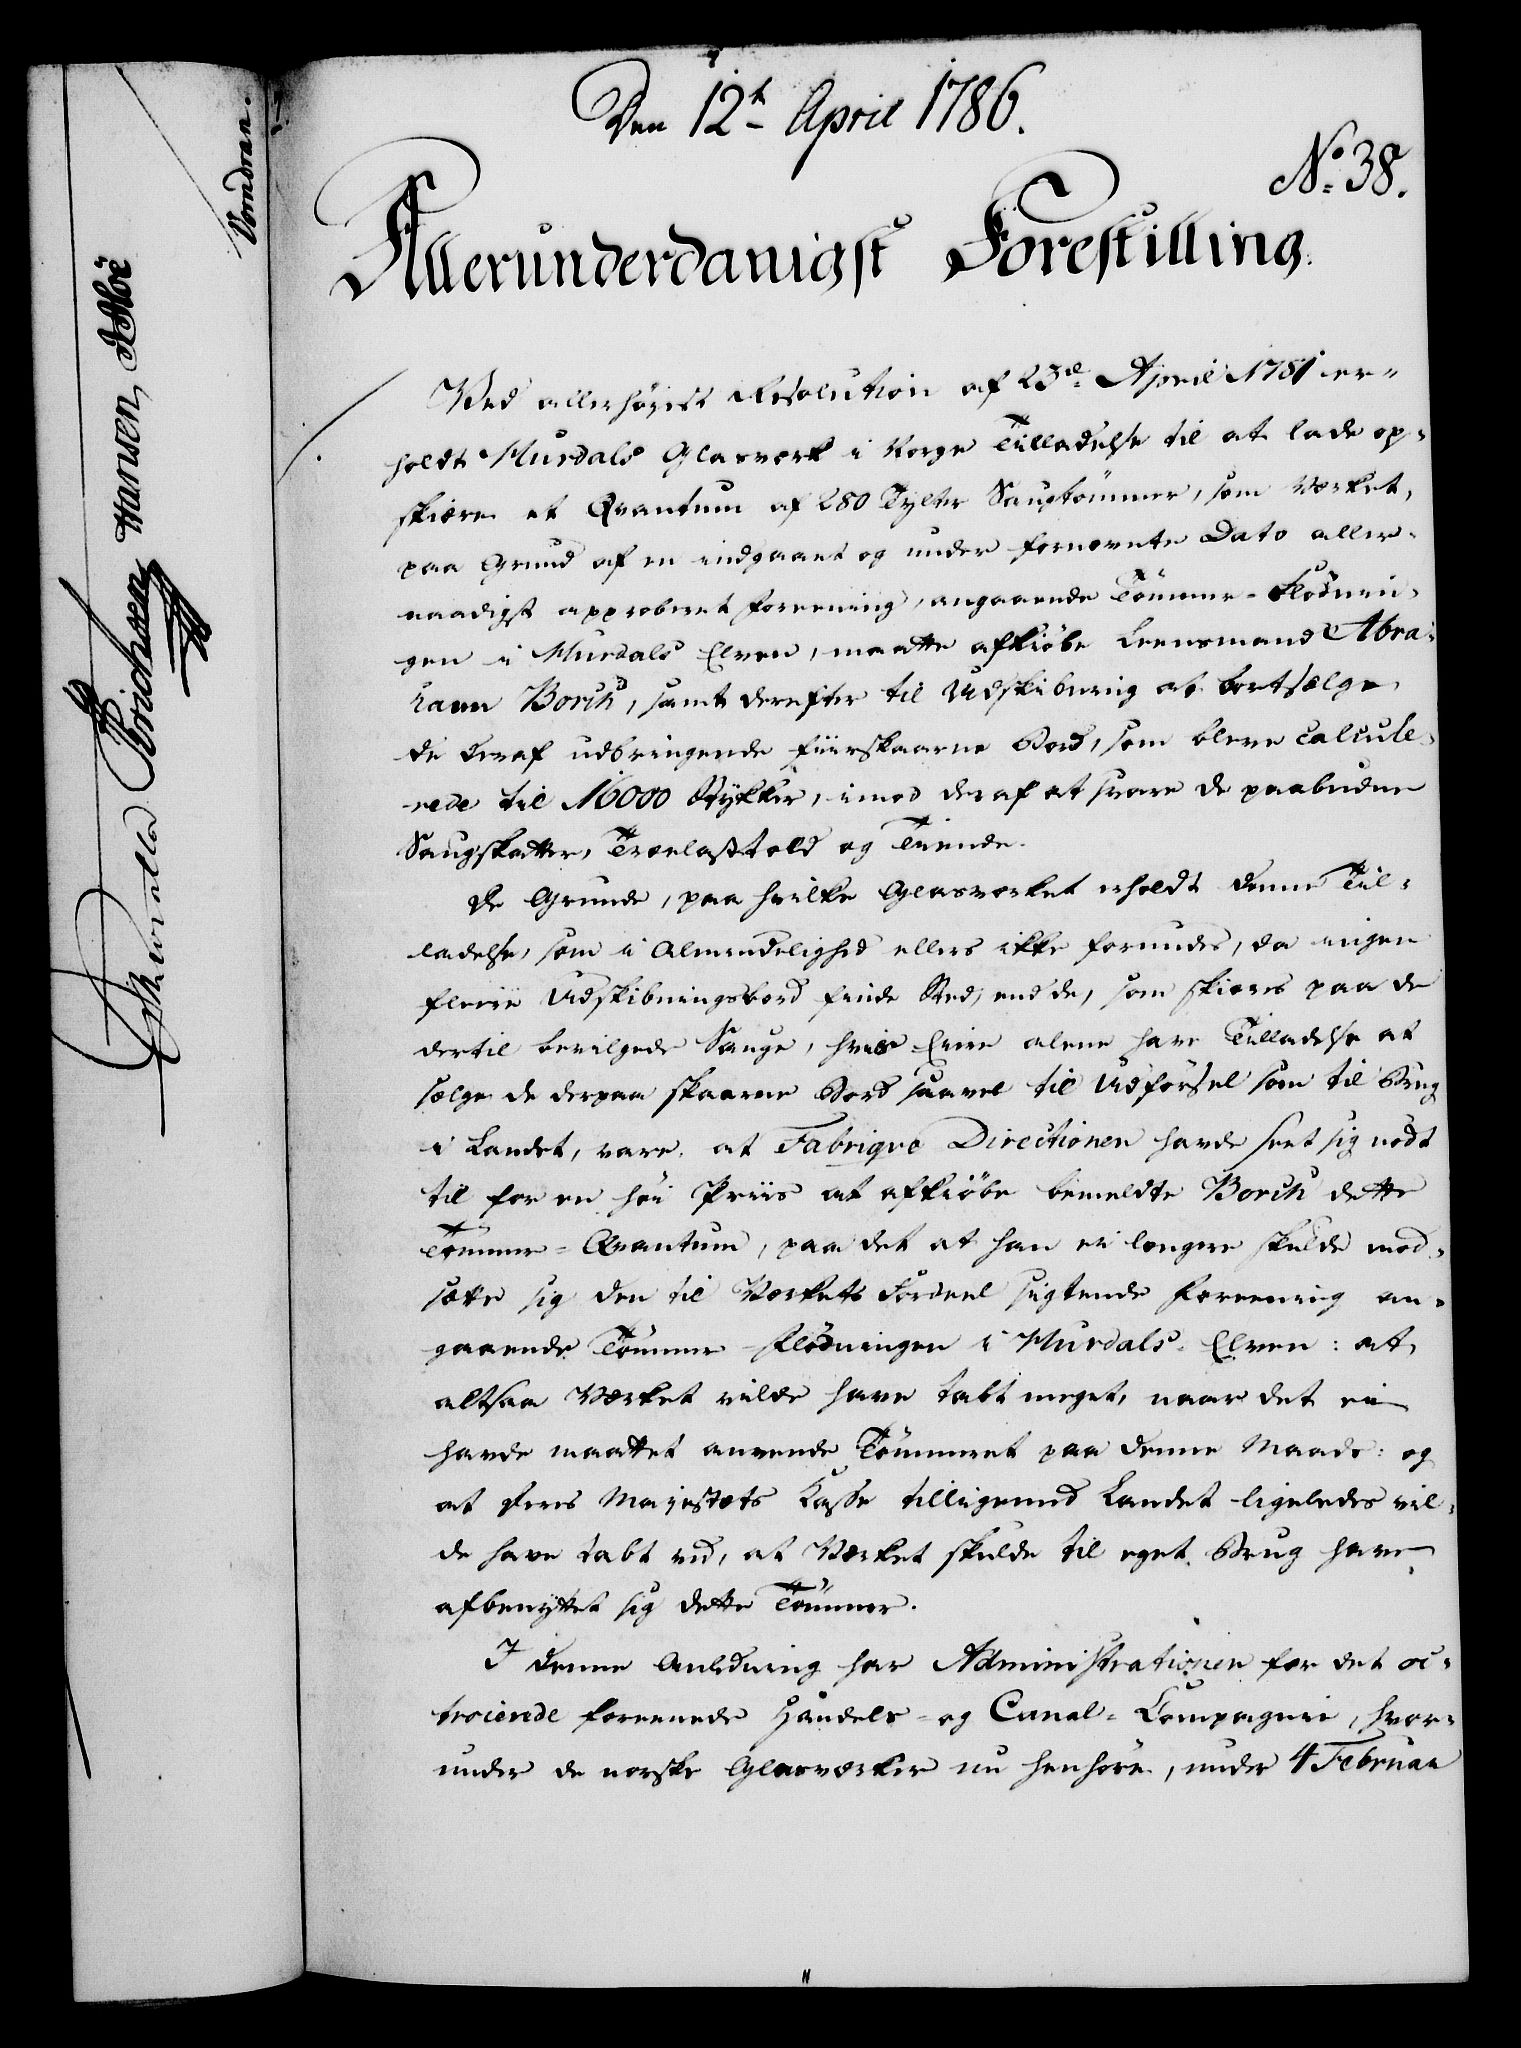 Den 12te April 1786.
No. 38.
Allerunderdanigst Forestilling.
Ved allerhøiest Resolution af 23de April 1781 er-
holdt Hurdals Glasværk i Norge Tilladelse til at lade op-
skiære et Qvantum af 280 Tylter Saugtømmer, som Værket,
paa Grund af en indgaaet og under fornevnte Dato aller-
naadigst approberet Foreening, angaaende Tømmer-Flødnin-
gen i Hurdals Elven, maatte afkiøbe Leensmand Abra-
ham Borch, samt derefter til Udskibning at bortsælge
de deraf udbringende fiirskaarne Bord, som bleve calcule-
rede til 16000 Stykker, imod deraf at svare de paabudne
Saugskatter, Trælasttold og Tiende.
De Grunde, paa hvilke Glasværket erholdt denne Til-
ladelse, som i Almindelighed ellers ikke forundes, da ingen
fleere Udskibningsbord finde Sted, end de, som skiæres paa de
dertil bevilgede Sauge, hvis Eiere alene have Tilladelse at
sælge de derpaa skaarne Bord saavel til Udførsel som til Brug
i Landet, vare, at Fabrique Directionen havde seet sig nødt
til for en høi Priis at afkiøbe bemeldte Borch dette
Tømmer-Qvantum, paa det at han ei længere skulde mod-
sætte sig den til Værkets Fordeel sigtende Foreening an-
gaaende Tømmer-Flødningen i Hurdals-Elven: at
altsaa Værket vilde have tabt meget, naar det ei
havde maattet anvende Tømmeret paa denne Maade: og
at Deres Majestæts Casse tilligemed Landet ligeledes vil-
de have tabt ved, at Værket skulde til eget Brug have
afbenyttet sig dette Tømmer.
I denne Anledning har Administrationen for det oc-
troierede foreenede Handels- og Canal-Compagnie, hvor-
under de norske Glasværker nu henhøre, under 4 Februar
Vomdran.
Hansen
Erichsen